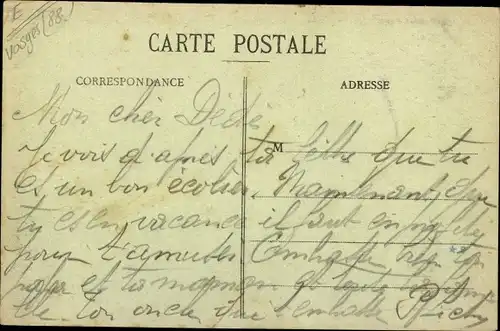 E
Vosges (88)
CARTE POSTALE
CORRESPONDANCE
ADRESSE
M
Mon cher Dédé
Je vois d'après ta lettre que tu
es un bon écolier. Maintenant que
tu es en vacance il faut en profiter
pour t'amuser. Embrasse bien ton
papa et ta maman et
de ton oncle qui t'embrasse